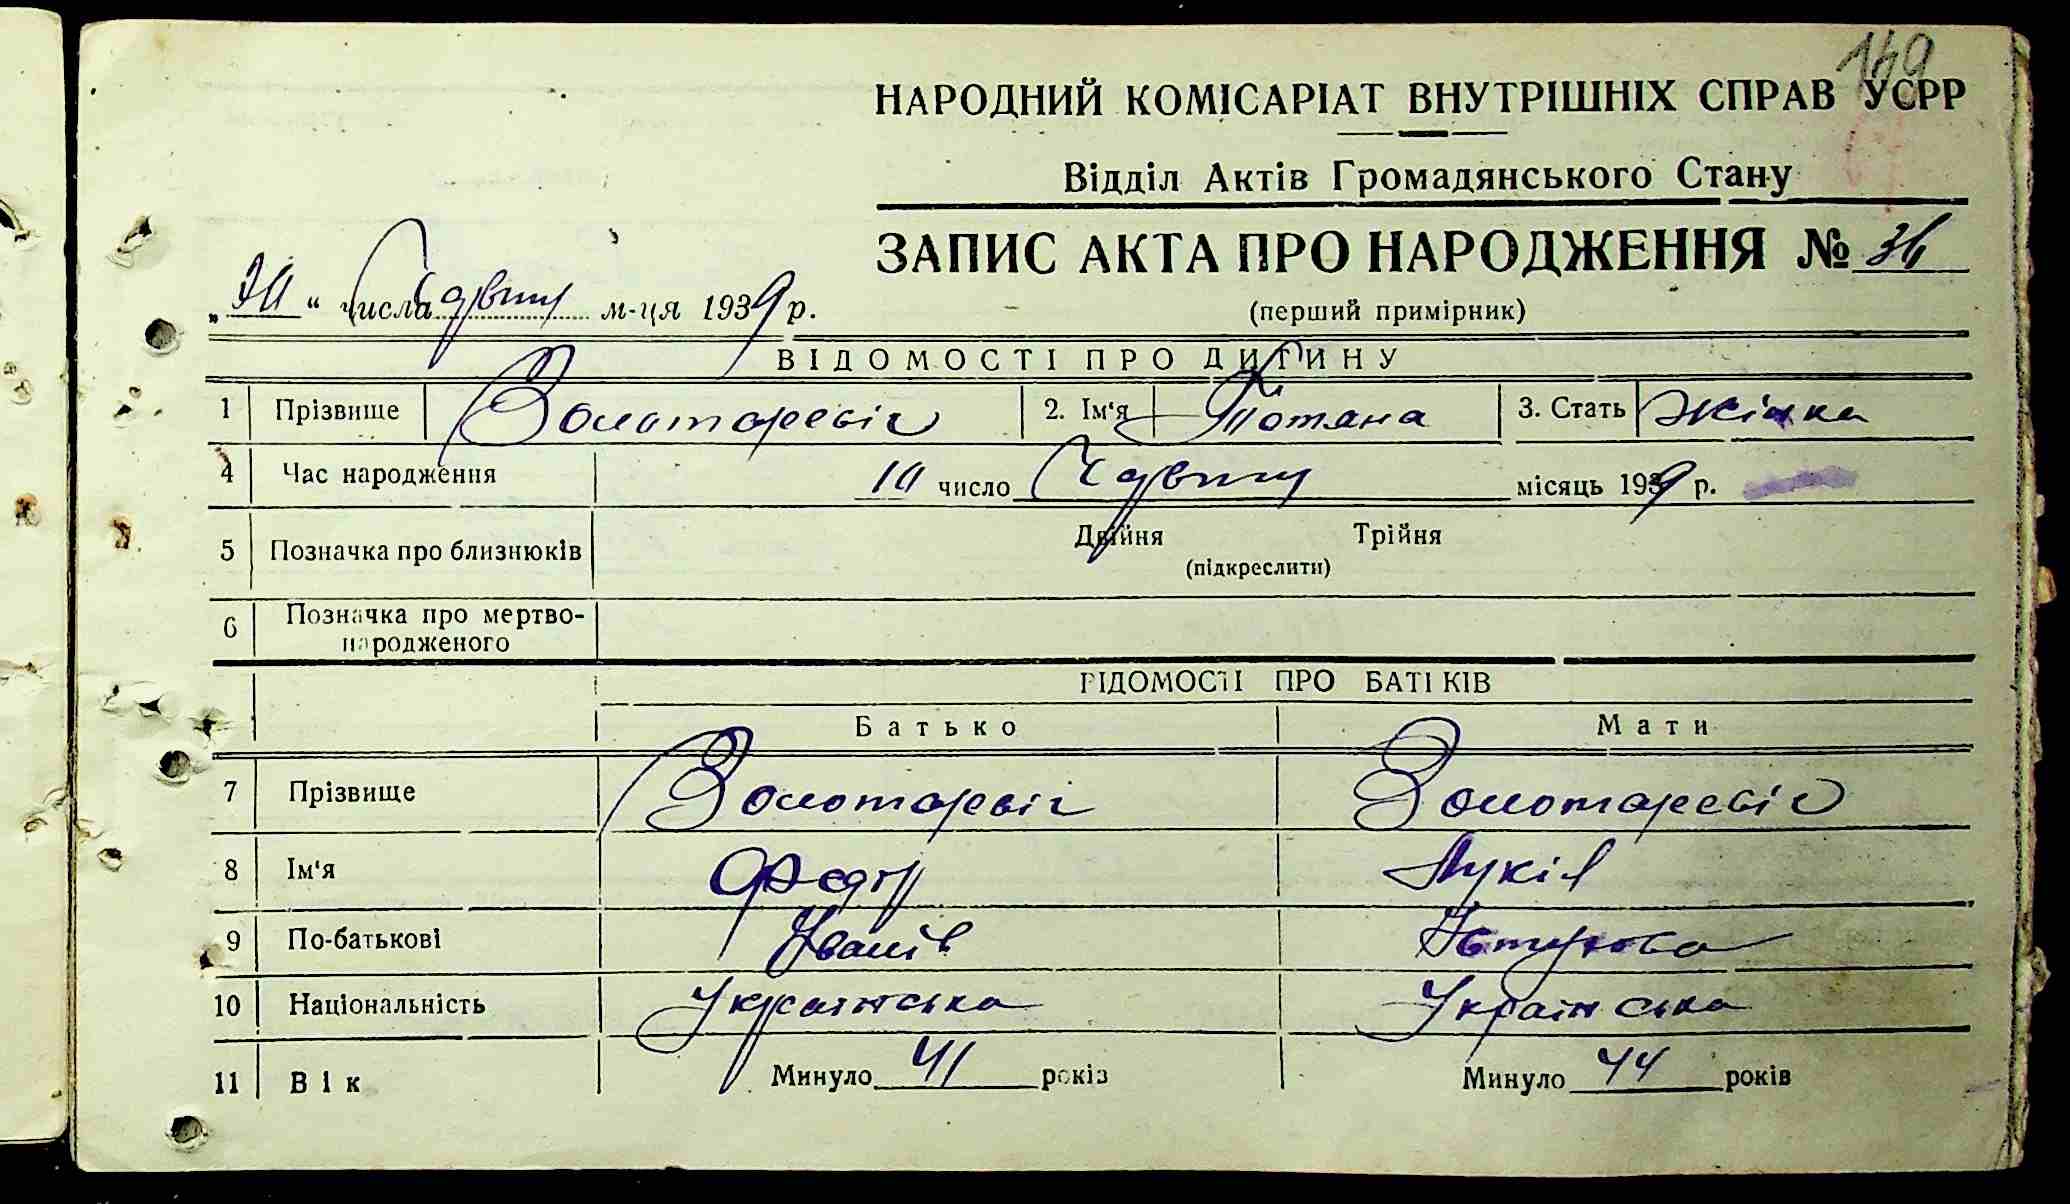 149
НАРОДНИЙ КОМІСАРІАТ ВНУТРІШНІХ СПРАВ УСРР
Відділ Актів Громадянського Стану
ЗАПИС АКТА ПРО НАРОДЖЕННЯ №
(перший примірник)
„ “ числа м-ця 1939 р.
ВІДОМОСТІ ПРО ДИТИНУ
1 Прізвище Золотаревіч 2. Ім'я Тотяна 3. Стать жінка
4 Час народження 10 число місяць 1939 р.
5 Позначка про близнюків Двійня Трійня
(підкреслити)
6 Позначка про мертво-
народженого
ВІДОМОСТІ ПРО БАТЬКІВ
Батько Мати
7 Прізвище Золотаревіч Золотаревіч
8 Ім'я Федір Лукія
9 По-батькові Іванів
10 Національність Українська Українська
11 Вік Минуло 41 років Минуло 44 років